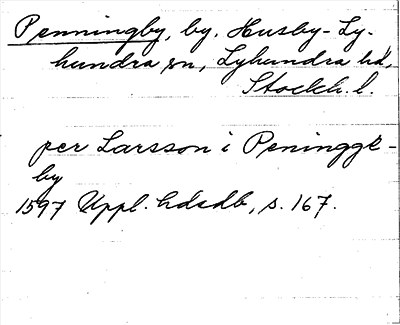 Penningby, by, Husby-Ly-
hundra sn, Lyhundra hd,
Stockh. l.
per Larsson i Peningge-
by
1597 Uppl. hdsdb, s. 167.